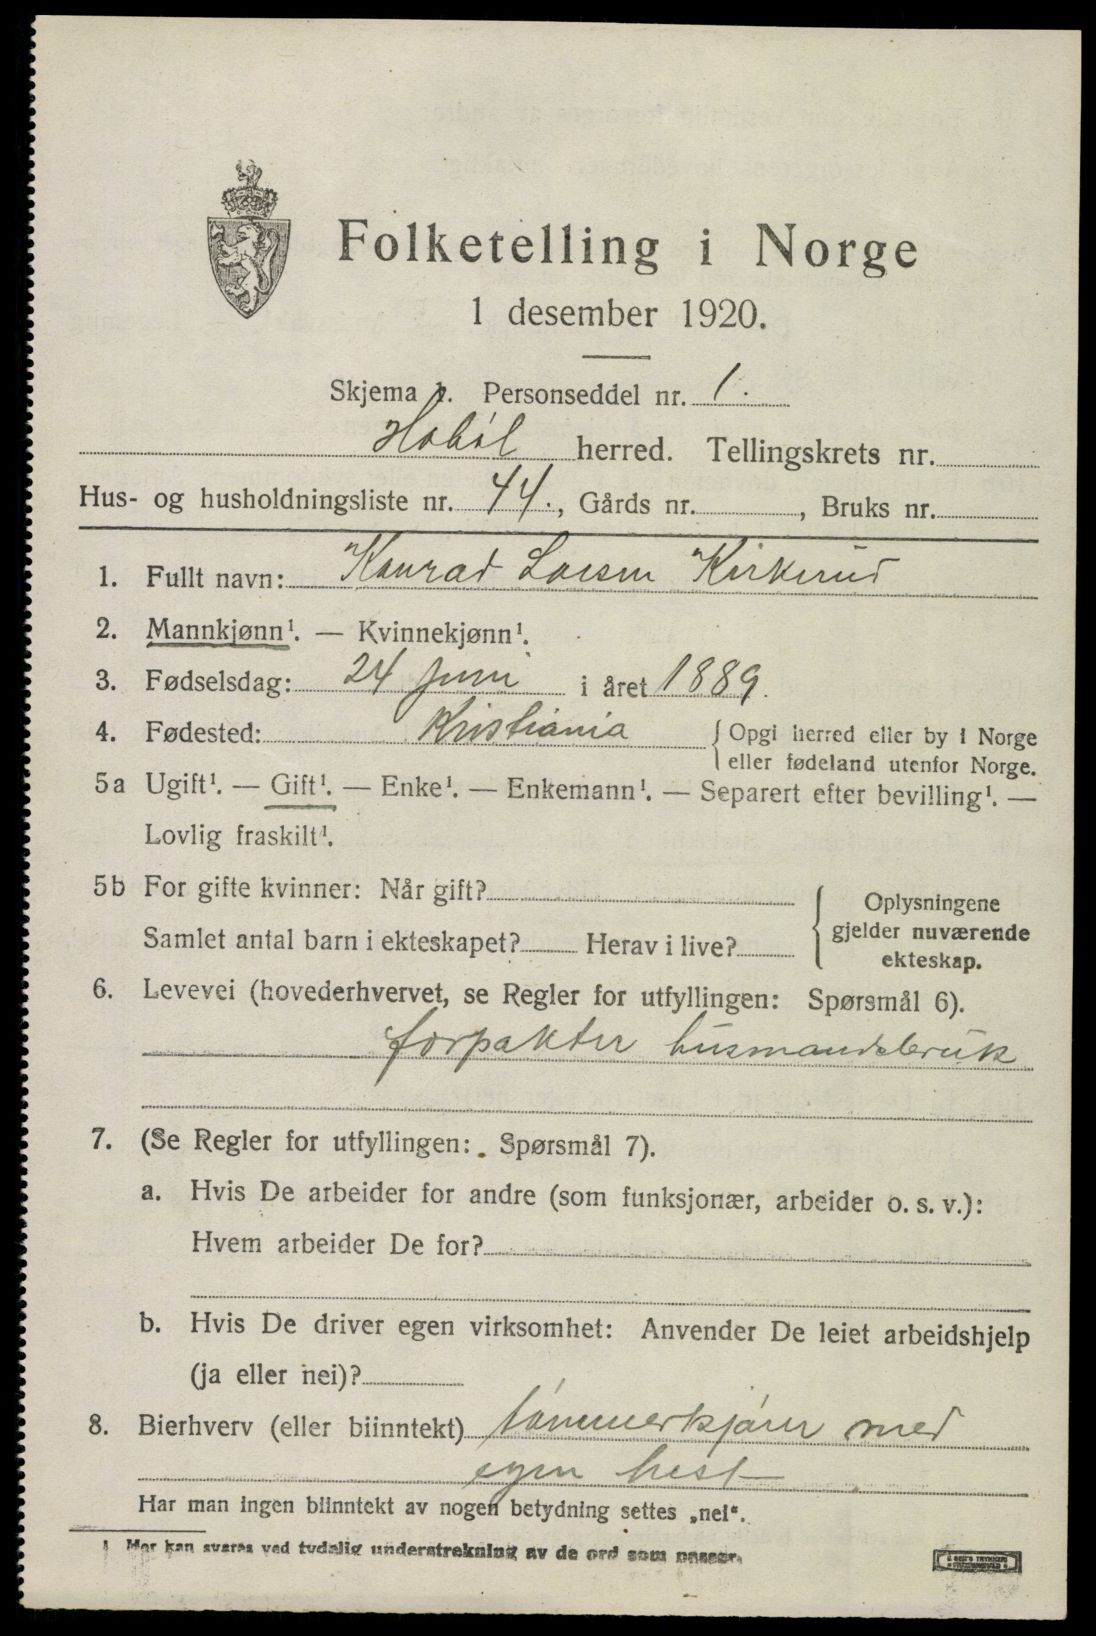 Folketelling i Norge
1 desember 1920.
Skjema 1. Personseddel nr. 1.
Hobøl herred. Tellingskrets nr.
Hus- og husholdningsliste nr. 44., Gårds nr. , Bruks nr.
1. Fullt navn: Konrad Larsen Kirkerud
2. Mannkjønn¹. — Kvinnekjønn¹.
3. Fødselsdag: 24 juni i året 1889.
4. Fødested: Kristiania { Opgi herred eller by i Norge
eller fødeland utenfor Norge.
5a Ugift¹. — Gift¹. — Enke¹. — Enkemann¹. — Separert efter bevilling¹. —
Lovlig fraskilt¹.
5b For gifte kvinner: Når gift? { Oplysningene
gjelder nuværende
Samlet antal barn i ekteskapet? Herav i live?
ekteskap.
6. Levevei (hovederhvervet, se Regler for utfyllingen: Spørsmål 6).
forpakter husmandsbruk
7. (Se Regler for utfyllingen: Spørsmål 7).
a. Hvis De arbeider for andre (som funksjonær, arbeider o. s. v.):
Hvem arbeider De for?
b. Hvis De driver egen virksomhet: Anvender De leiet arbeidshjelp
(ja eller nei)?
8. Bierhverv (eller biinntekt) tømmerkjører med
egen hest
Har man ingen biinntekt av nogen betydning settes „nei“.
1 Her kan svares ved tydelig understrekning av de ord som passer.